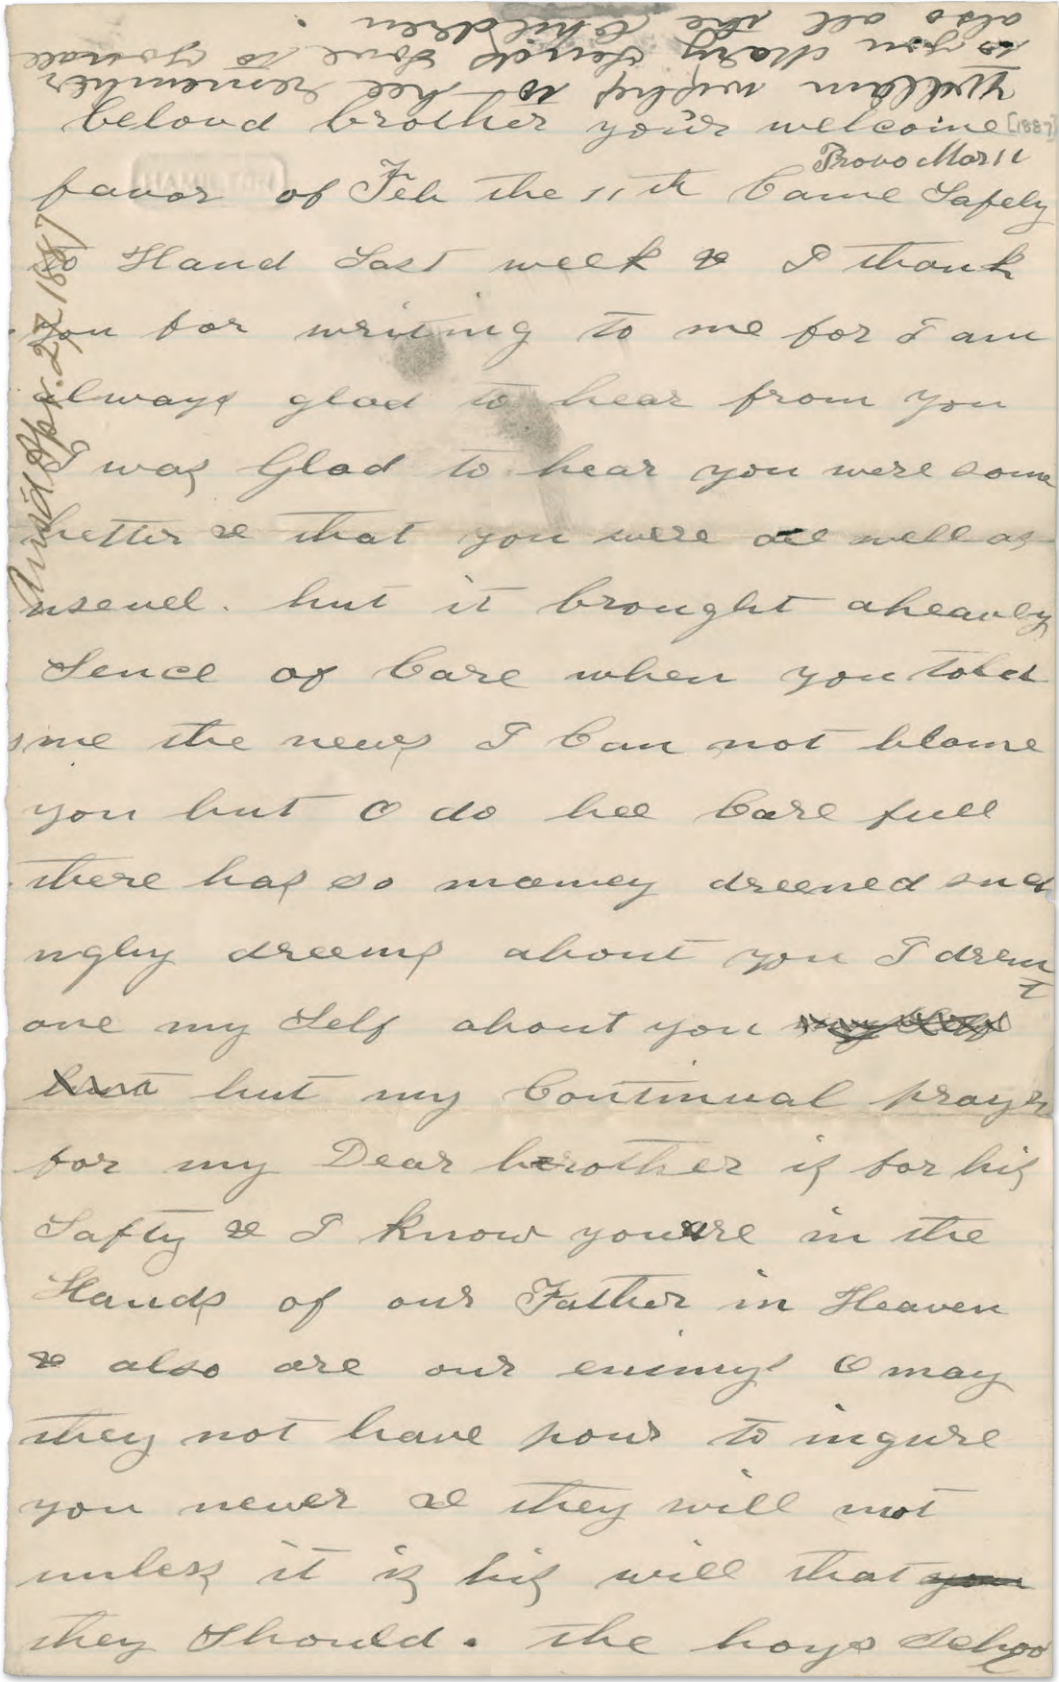 William wishes to bee remember
to you Mary Sends Love to you all
also all the Children.
belovd brother your welcome [1887]
Provo Mar 11
favor of Feb the 11th Came Safely
to Hand Last week & I thank
you for writing to me for I am
always glad to hear from you
I was Glad to hear you were some
better & that you were all well as
useuel. but it brought a heavey
Sence of Care when you told
me the news I Can not blame
you but O do bee Care full
there has so maney dreened such
ugly dreems about you I drem
t
one my Self about you my Self
but my Continual prayr
for my Dear brother is for his
Safty & I know you are in the
Hands of our Father in Heaven
& also are our enimys O may
they not have pour to ingure
you never & they will not
unless it is his will that you
they Should. the boys Schoo
HAMILTON
Ansd Apr. 27 1887